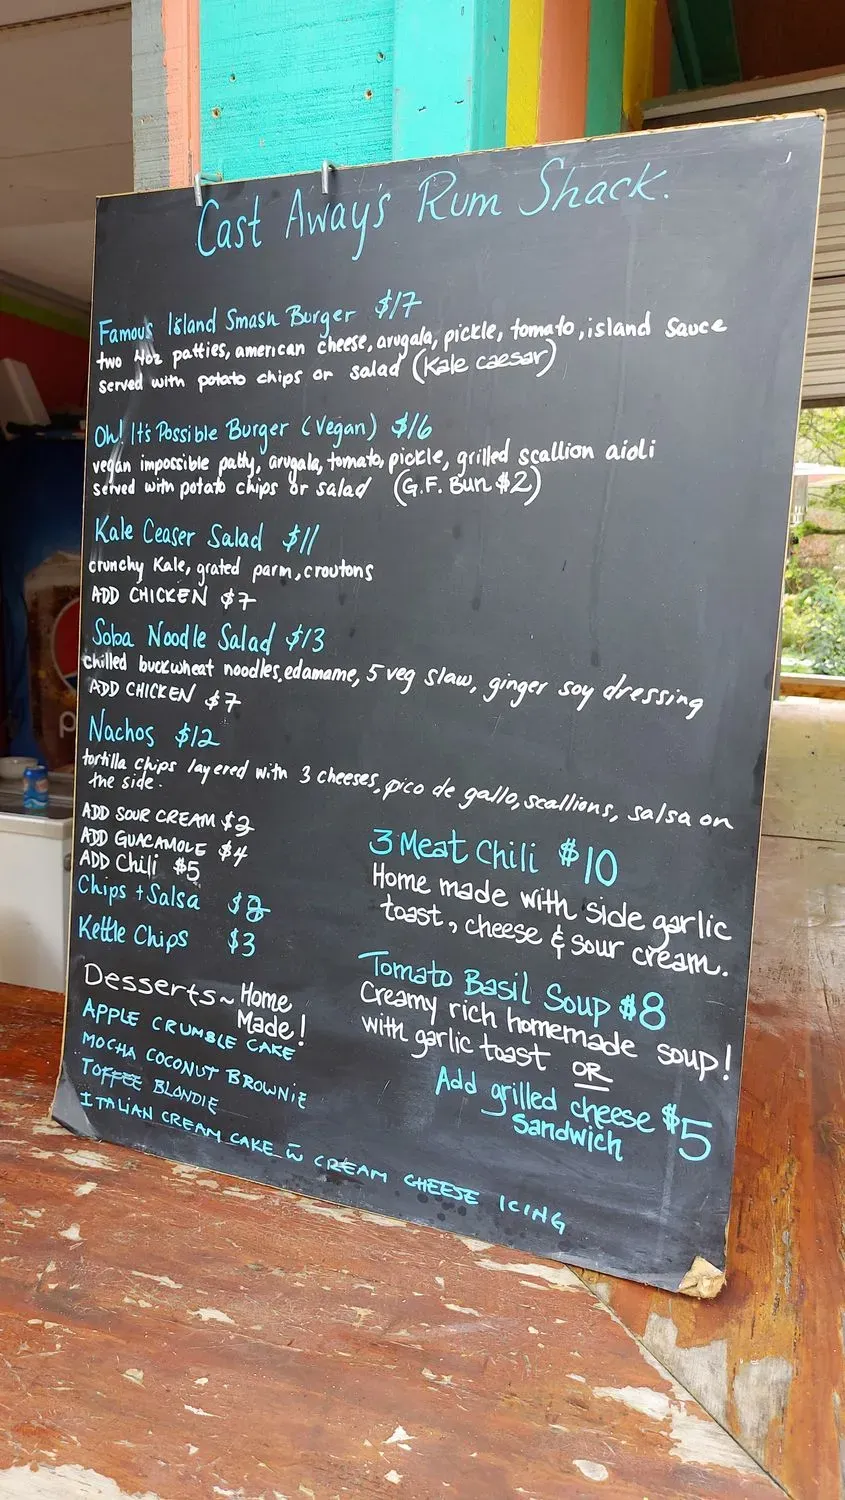 Cast Away's Rum Shack.
Famous Island Smash Burger $17
two 4oz patties, american cheese, arugala, pickle, tomato, island sauce
served with potato chips or salad (Kale caesar)
Oh! It's Possible Burger (Vegan) $16
vegan impossible patty, arugala, tomato, pickle, grilled scallion aioli
served with potato chips or salad (G.F. Bun $2)
Kale Ceaser Salad $11
crunchy Kale, grated parm, croutons
ADD CHICKEN $7
Soba Noodle Salad $13
chilled buckwheat noodles, edamame, 5 veg slaw, ginger soy dressing
ADD CHICKEN $7
Nachos $12
tortilla chips layered with 3 cheeses, pico de gallo, scallions, salsa on
the side.
ADD SOUR CREAM $2
ADD GUACAMOLE $4
ADD Chili $5
Chips + Salsa
Kettle Chips $3
3 Meat Chili $10
Home made with side garlic
toast, cheese & sour cream.
Tomato Basil Soup $8
Creamy rich homemade soup!
with garlic toast OR
Add grilled cheese $5
sandwich
Desserts~ Home
Made!
APPLE CRUMBLE CAKE
MOCHA COCONUT BROWNIE
TOFFEE BLONDIE
ITALIAN CREAM CAKE w̄ CREAM CHEESE ICING